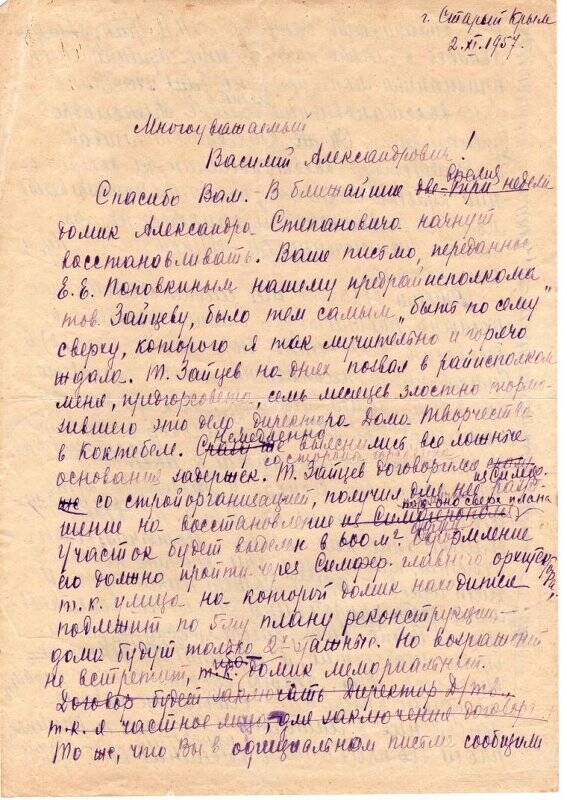 г. Старый Крым
2.XI.1957.
Многоуважаемый
Василий Александрович!
Спасибо Вам. - В ближайшие две-три недели
домик Александра Степановича начнут
восстанавливать. Ваше письмо, переданное
Е.Е. Поповкиным нашему предрайисполкома
тов. Зайцеву, было тем самым „быть по сему"
сверху, которого я так мучительно и горячо
ждала. Т. Зайцев на днях позвал в райисполком
меня, предгорсовета, семь месяцев злостно тормо-
зившего это дело, директора Дома Творчества
в Коктебеле. Сразу же немедленно выяснились все ложные
основания задержек. Т. Зайцев договорился
со стройорганизацией, получил
шение на восстановление из Симферополя
Участок будет выделен в 600 м². Оформление
его должно пройти через Симфер. главного архитек
т.к. улица на которой домик находится
подлежит по 5му плану реконструкции -
дома будут только 2х этажные. Но возражений
не встретит, т.к. домик мемориальный.
Договор будет заключать Директор Д/тв.
т.к. я частное лицо, для заключения договора
То же, что Вы в официальном письме сообщили